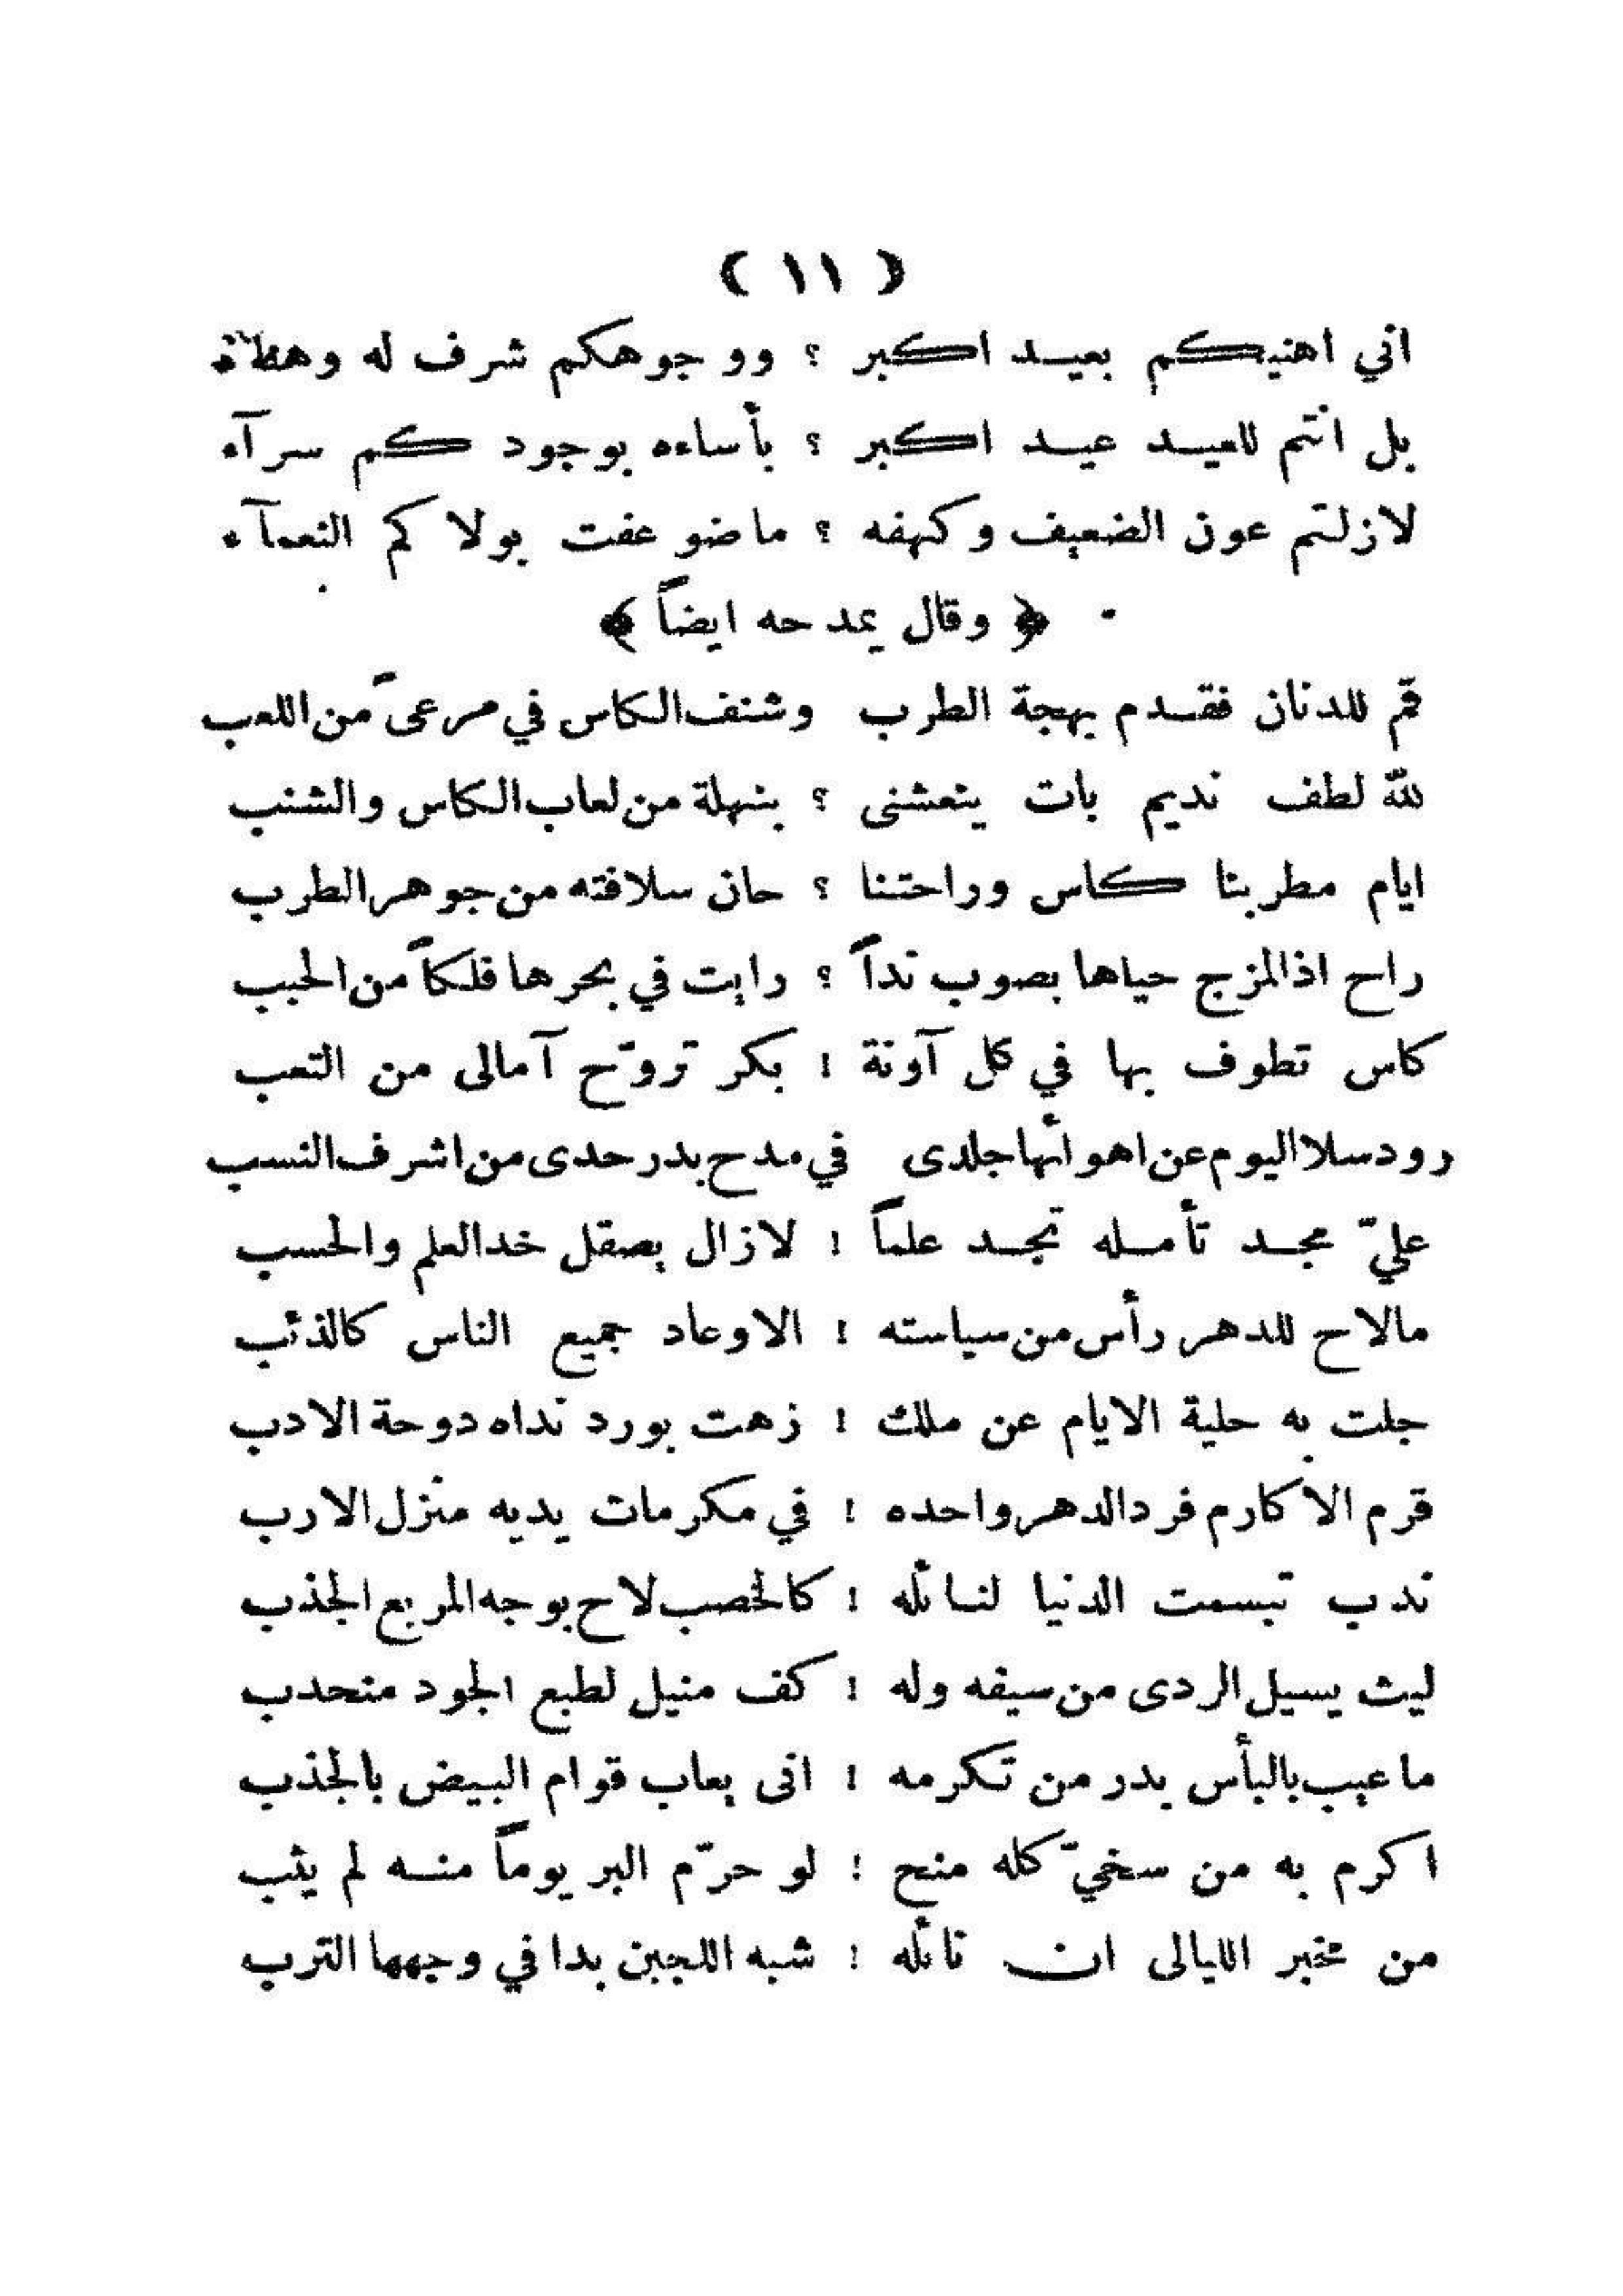 ( ١١ )
اني اهنيكم بعيد اكبر ؟ ووجوهكم شرف له
بل انتم للعيد عيد اكبر ؟ بأساءه بوجودكم سرآء
لازلتم عون الضعيف وكهفه ؟ ماضوعفت بولاكم النعمآء
﴿ وقال يمدحه ايضاً ﴾
قم للدنان فقدم بهجة الطرب وشنف الكاس في مرعىً من اللعب
لله لطف نديم بات ينعشنى ؟ بنهلة من لعاب الكاس والشنب
ايام مطربنا كاس وراحتنا ؟ حان سلافته من جوهر الطرب
راح اذالمزج حياها بصوب نداً ؟ رايت في بحرها فلكاً من الحبب
كاس تطوف بها في كل آونة ! بكر تروّح آمالى من التعب
رود سلا اليوم عن اهوائها جلدى في مدح بدر حدى من اشرف النسب
عليّ مجد تأمله تجد علماً ! لازال يصقل خد العلم والحسب
مالاح للدهر رأس من سياسته ! الا وعاد جميع الناس كالذئب
جلت به حلية الايام عن ملك ! زهت بورد نداه دوحة الادب
قرم الاكارم فرد الدهر واحده ! في مكرمات يديه منزل الارب
ندب تبسمت الدنيا لنائله ! كالخصب لاح بوجه المربع الجذب
ليث يسيل الردى من سيفه وله ! كف منيل لطبع الجود منحدب
ماعيب بالبأس بدر من تكرمه ! انى يعاب قوام البيض بالجذب
اكرم به من سخيّ كله منح ! لو حرّم البر يوماً منه لم يثب
من مخبر الليالى ان نائله ! شبه اللجين بدا في وجهها الترب